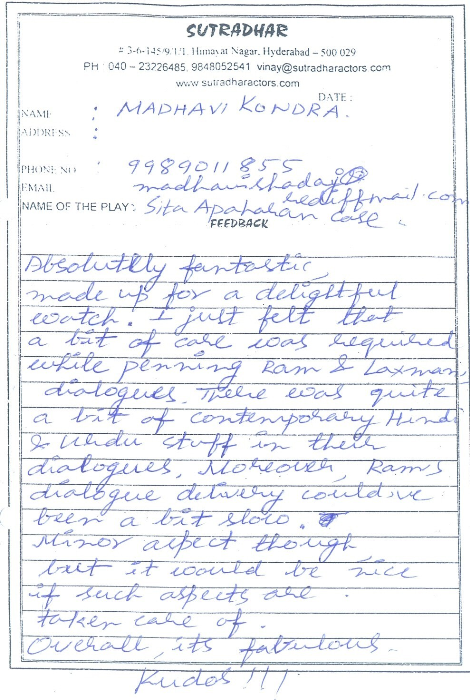 SUTRADHAR
# 3-6-145/9/1/1, Himayat Nagar, Hyderabad – 500 029
PH : 040 – 23226485, 9848052541 vinay@sutradharactors.com
www.sutradharactors.com
DATE :
NAME : MADHAVI KONDRA.
ADDRESS :
PHONE NO : 9989011855
EMAIL
rediffmail.com
NAME OF THE PLAY : Sita Apaharan Case.
FEEDBACK
Absolutely fantastic,
made up for a delightful
watch. I just felt that
a bit of care was required
while penning Ram & Laxman
dialogues. There was quite
a bit of contemporary Hindi
& Urdu stuff in their
dialogues, Moreover, Ram's
dialogue delivery could've
been a bit slow.
Minor aspect though,
but it would be nice
if such aspects are
taken care of.
Overall, its fabulous.
Kudos !!!